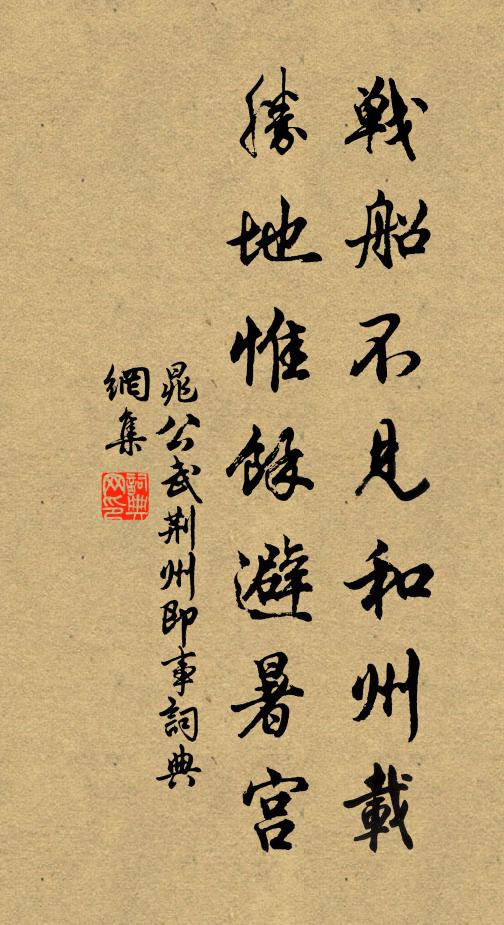 戰船不見和州載
勝地惟餘避暑宮
晁公武荆州即事詞典
網集
詞典網印